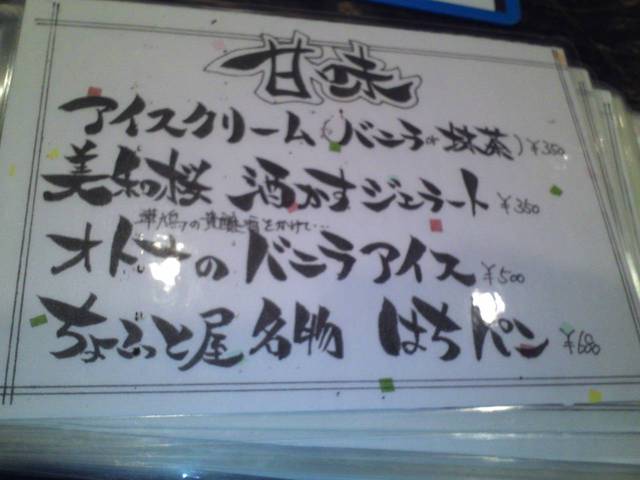 甘味
アイスクリーム(バニラor抹茶)¥350
美和桜 酒かすジェラート ¥350
の貴醸酒をかけて…
オトナのバニラアイス ¥500
ちょぶっと屋名物 はちパン ¥680